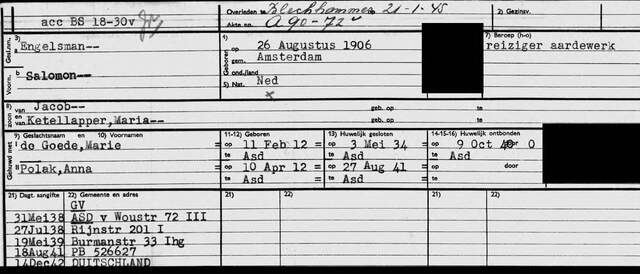 acc BS 18-30v
Overleden te Blechhammer 21-1-45
Akte no. A 90-72v
2) Gezinsv.
3) Engelsman--
Gesl.nm.
1) Geboren
op 26 Augustus 1906
te Amsterdam
7) Beroep (h-o)
reiziger aardewerk
Voorn.
b Salomon--
Gond./land
5) Nat. Ned
8) zoon van Jacob-- geb. op te
en van Ketellapper, Maria-- geb. op te
9) Geslachtsnaam en 10) Voornamen
11-12) Geboren
13) Huwelijk gesloten
14-15-16) Huwelijk ontbonden
Gehuwd met
I de Goede, Marie = op 11 Feb 12 = op 3 Mei 34 = op 9 Oct 40 door O
= te Asd = te Asd = te Asd
II Polak, Anna = op 10 Apr 12 = op 27 Aug 41 = op door
= te Asd = te Asd = te
21) Dagt. aangifte 22) Gemeente en adres 21) 22) 21) 22)
GV
31Mei38 ASD v Woustr 72 III
27Jul38 Rijnstr 201 I
19Mei39 Burmanstr 33 Ihg
18Aug41 PB 526627
14Dec42 DUITSCHLAND